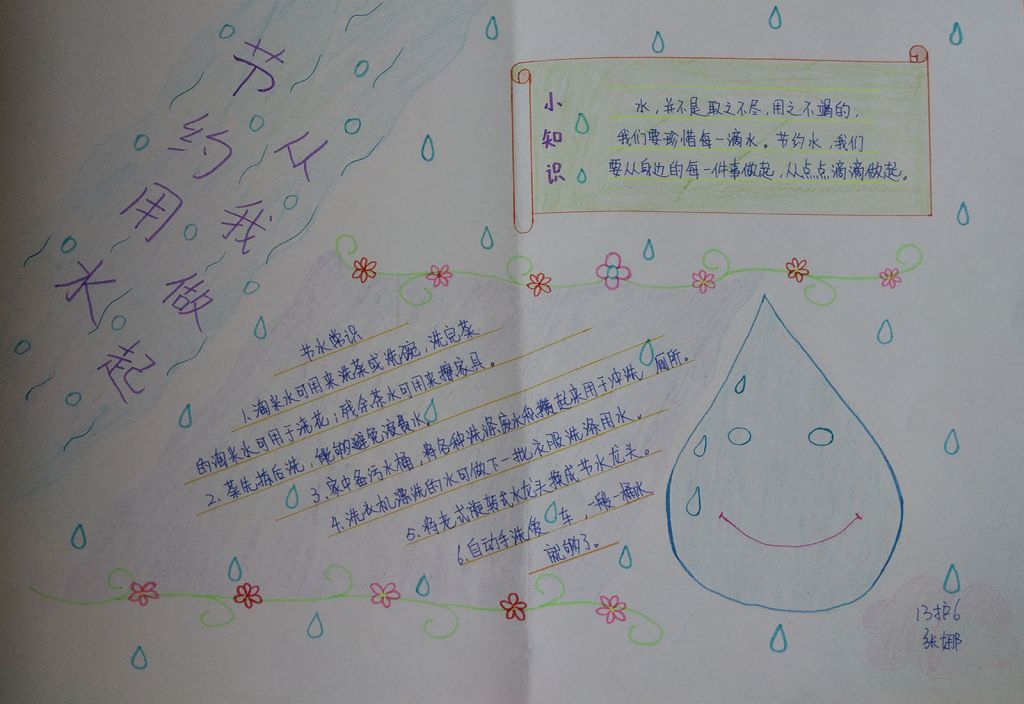 节约用水
从我做起
小知识
水，并不是取之不尽，用之不竭的，
我们要珍惜每一滴水。节约水，我们
要从身边的每一件事做起，从点点滴滴做起。
节水常识
1.淘米水可用来洗菜或洗碗，洗完菜
的淘米水可用于浇花；残余茶水可用来擦家具。
2.菜先择后洗，能够避免浪费水。
3.家中备污水桶，将各种洗涤废水积攒起来用于冲洗厕所。
4.洗衣机漂洗的水可做下一批衣服洗涤用水。
5.将老式旋转式水龙头换成节水龙头。
6.自动手洗 车，一般一桶水
就够了。
13护6
张娜